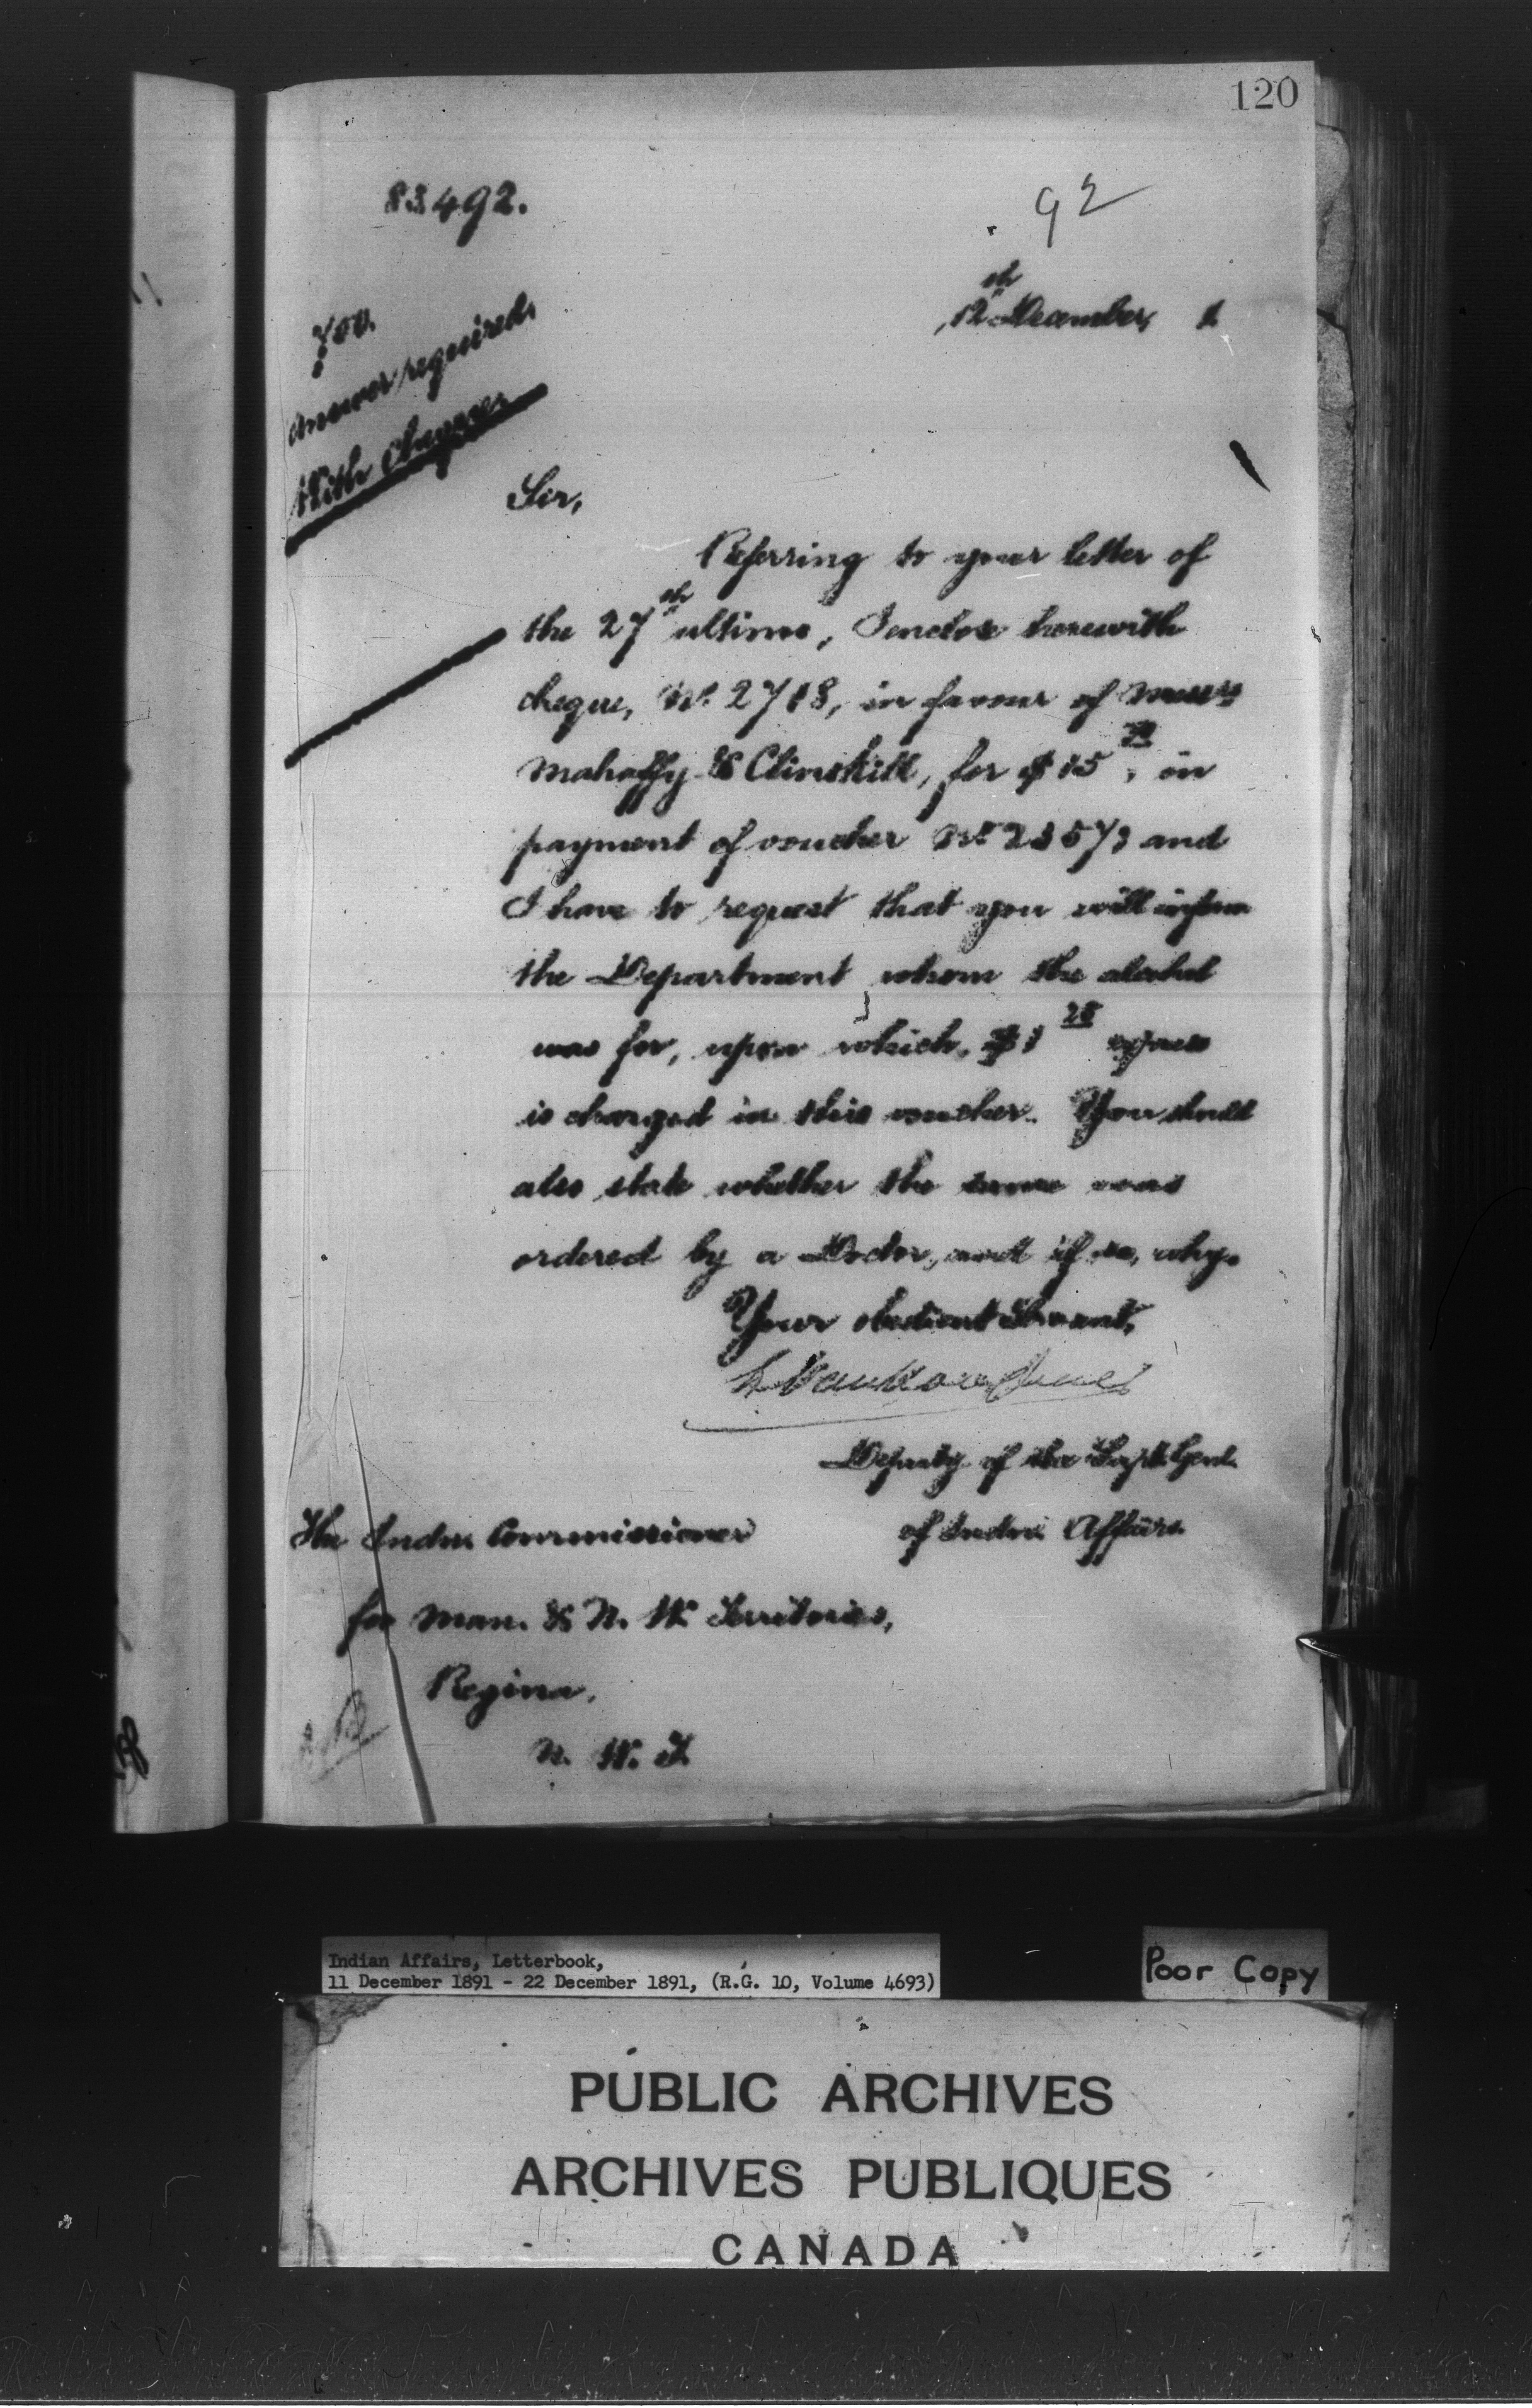 120
83492.
92
12th December, 1
Answer required.
With Cheque
Sir,
Referring to your letter of
the 27th ultimo, I enclose herewith
cheque, No. 2718, in favour of Messrs
Mahaffy & Clinskill, for $15, in
payment of voucher No 23573 and
I have to request that you will inform
the Department whom the alcohol
was for, upon which $1 25
is charged in this voucher. You should
also state whether the same was
ordered by a Doctor, and if so, why.
Your obedient Servant,
L. Vankoughnet
Deputy of the Supt. Genl.
of Indn. Affairs.
The Indn. Commissioner
for Man. & N. W. Territories,
Regina,
N. W. T.
Indian Affairs, Letterbook,
11 December 1891 - 22 December 1891, (R.G. 10, Volume 4693)
Poor Copy
PUBLIC ARCHIVES
ARCHIVES PUBLIQUES
CANADA